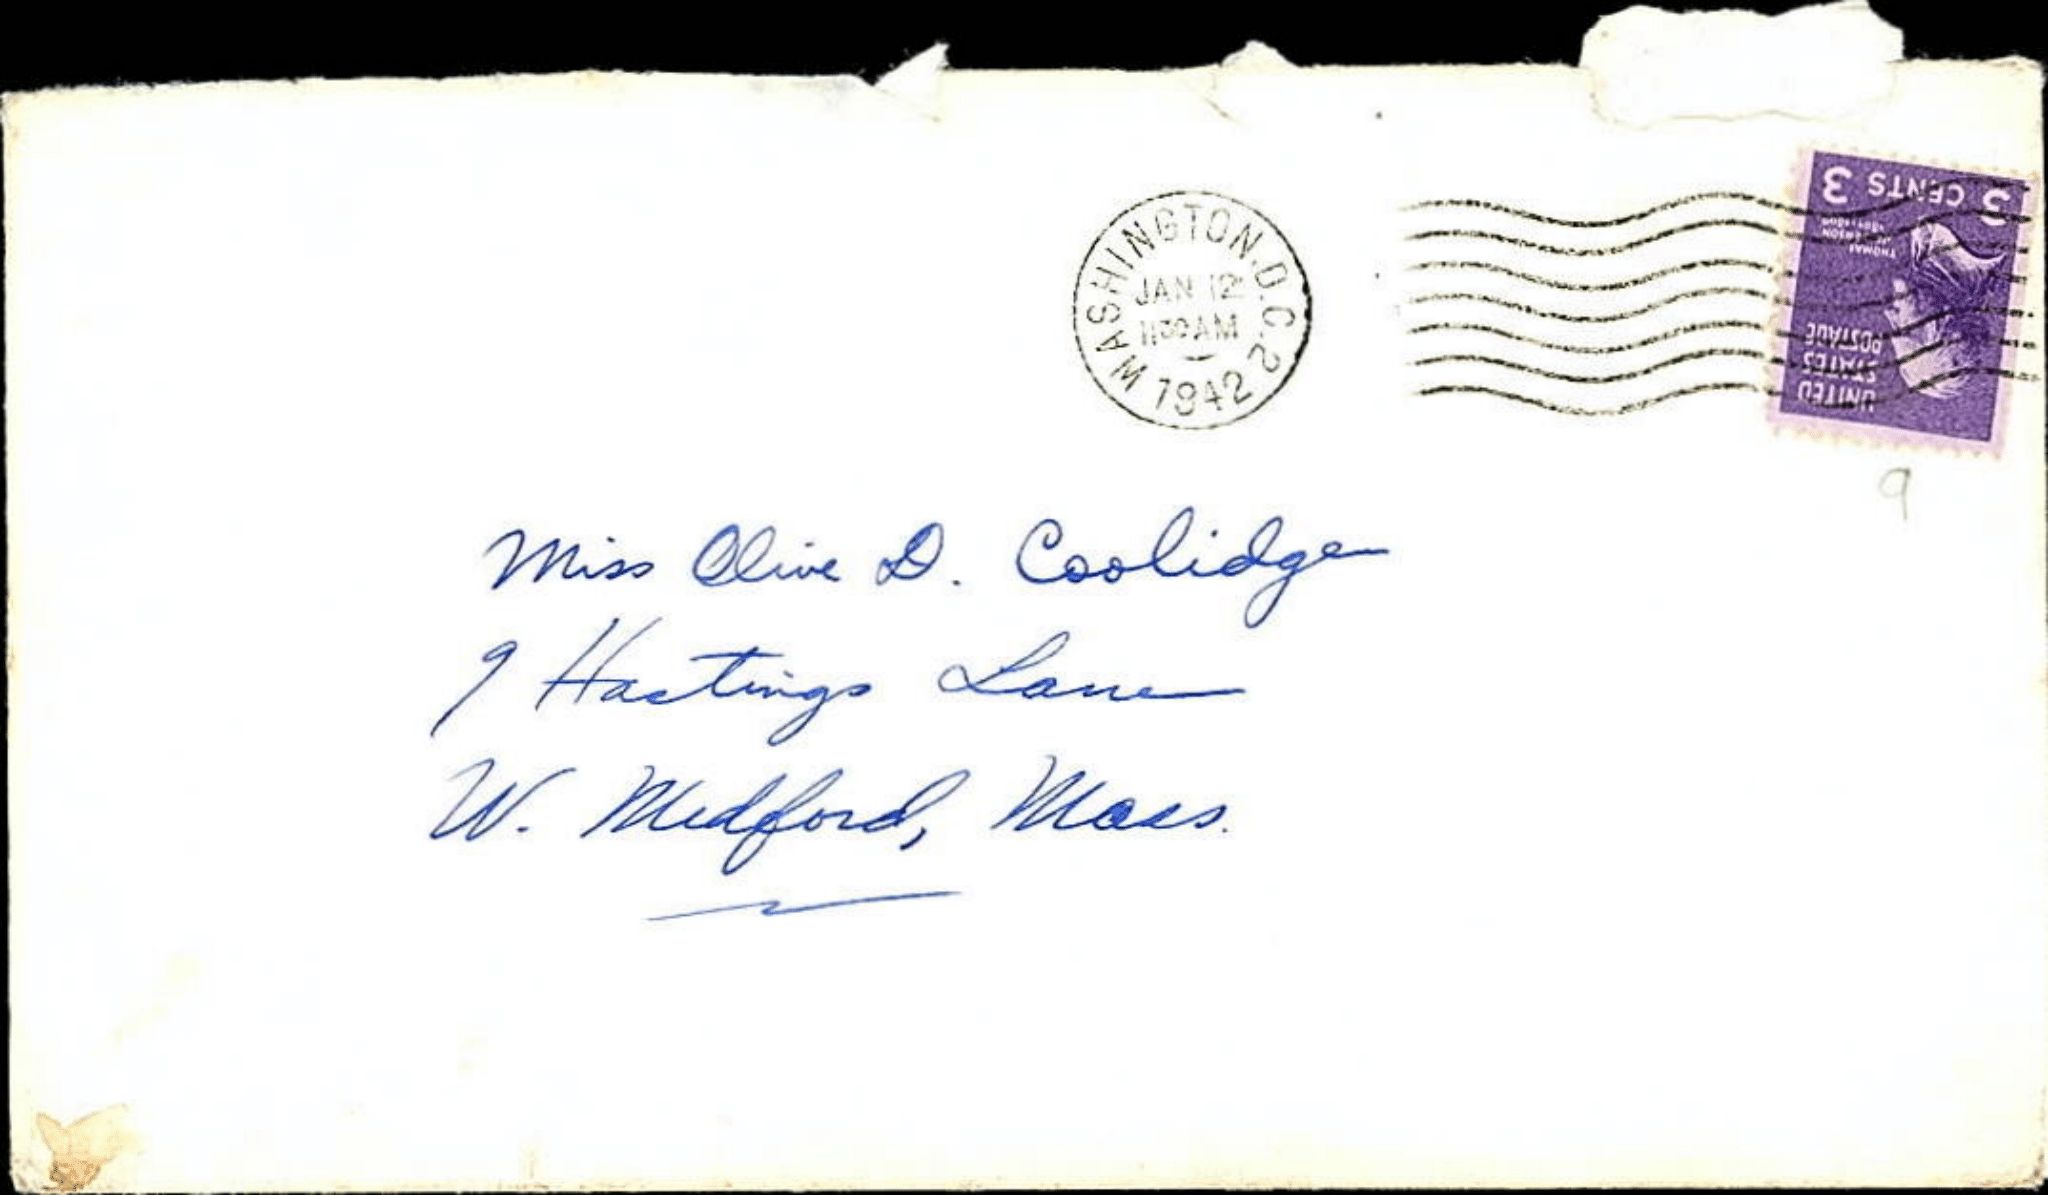 WASHINGTON, D.C. 2
JAN 12
11 30 AM
1942
3 CENTS 3
THOMAS
JEFFERSON
UNITED
STATES
POSTAGE
9
Miss Olive D. Coolidge
9 Hastings Lane
W. Medford, Mass.